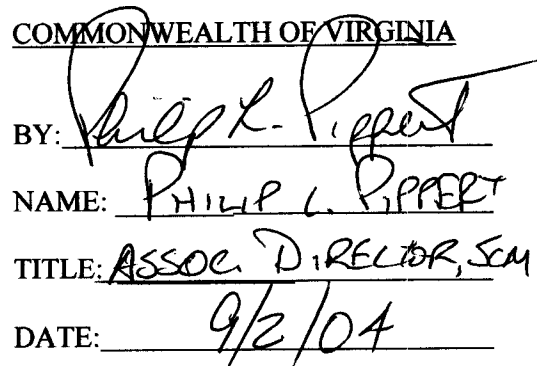 COMMONWEALTH OF VIRGINIA
BY: Philip L. Pippert
NAME: PHILIP L. PIPPERT
TITLE: ASSOC. DIRECTOR, SCM
DATE: 9/2/04